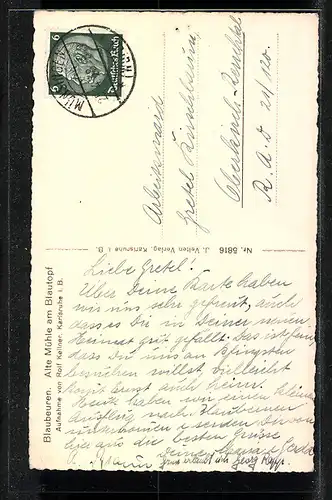 Blaubeuren. Alte Mühle am Blautopf
Aufnahme von Rolf Kellner, Karlsruhe i. B.
Liebe Gretel!
Über Deine Karte haben
wir uns sehr gefreut, auch
dass es Dir in Deiner neuen
Heimat gut gefällt. Das ist fein
dass Du uns an Pfingsten
besuchen willst, vielleicht
Ernst auch heim.
Heute haben wir einen kleinen
Ausflug nach Blaubeuren
u. senden Dir von
hier aus die besten Grüsse
Deine Gerda
Georg
Nr. 5816 J. Velten Verlag, Karlsruhe i. B.
6 Deutsches Reich 6
MÜNSINGEN
Arbeitsmaid
Gretel
Oberkirch-
R. A. D 21/120.